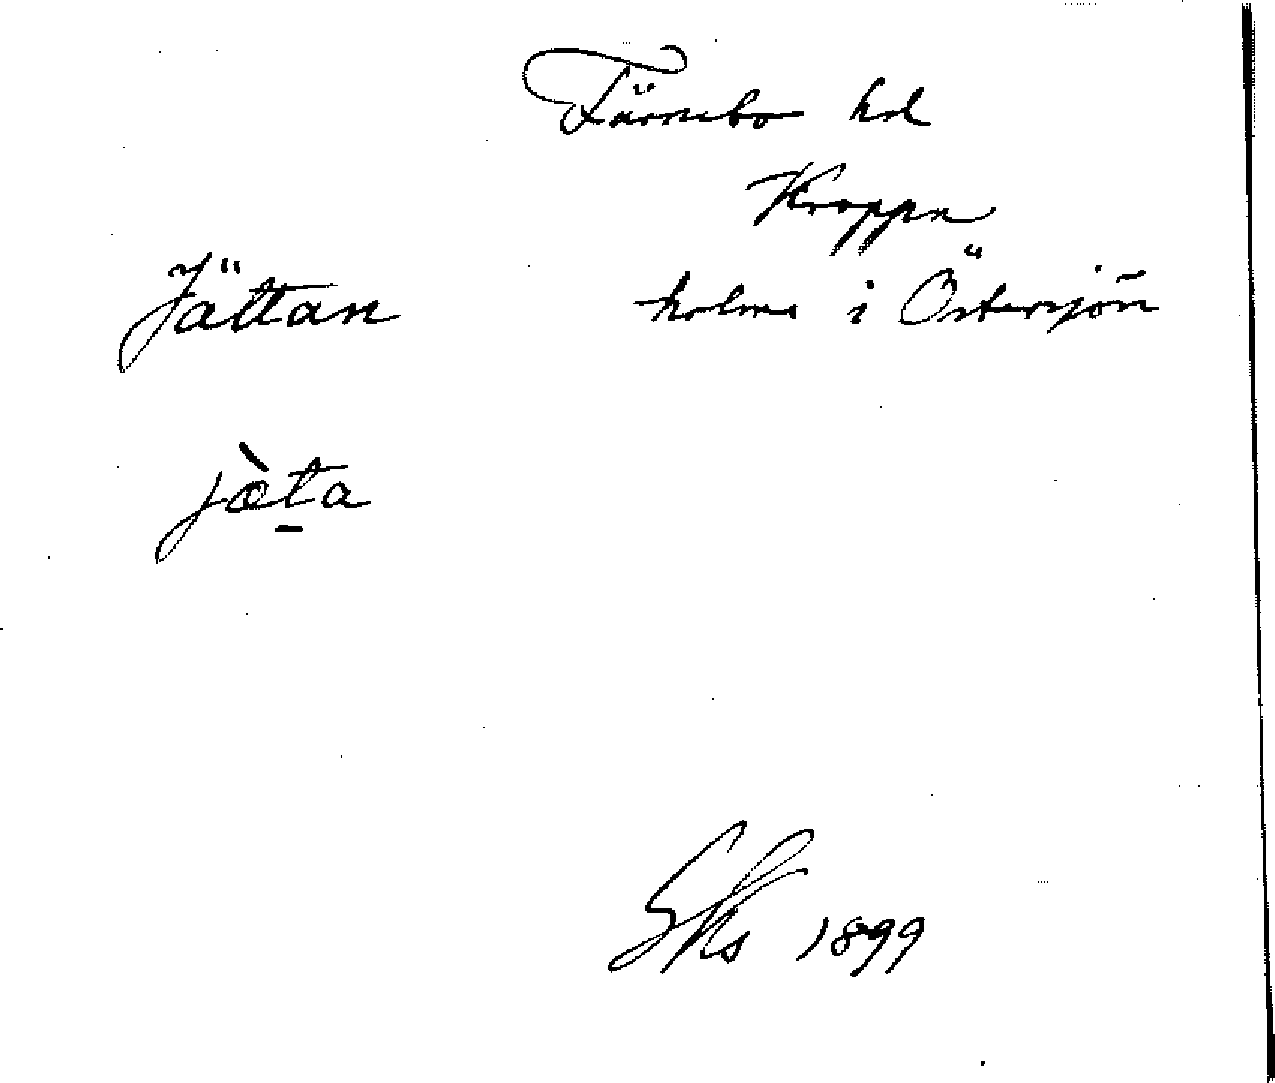 Färnebo hd
Kroppa
Jättan holme i Östersjön
jæ̀ṯa
SKs 1899